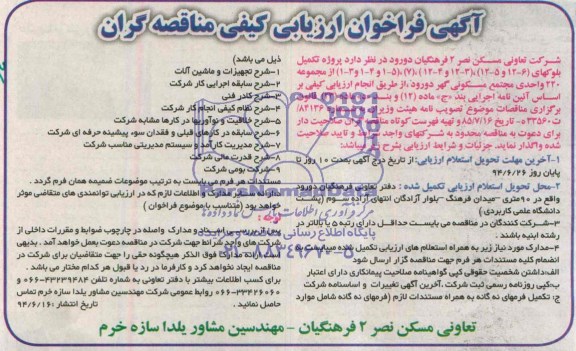 آگهی فراخوان ارزیابی کیفی مناقصه گران
شرکت تعاونی مسکن نصر ۲ فرهنگیان دورود در نظر دارد پروژه تکمیل
بلوکهای (۶-۱۲ و ۵-۱۲)،(۳-۱۲ و ۴-۱۲)،(۷)،(۵-۱ و ۴-۱ و ۳-۱) از مجموعه
۲۲۰ واحدی مجتمع مسکونی گهر دورود ،از طریق انجام ارزیابی کیفی بر
اساس آئین نامه اجرایی بند «ج» ماده (۱۲) و بند ماده (۲۶) قانون
برگزاری مناقصات موضوع تصویب نامه هیئت وزیران به شماره ۸۴۱۳۶/
ت۳۳۵۶۰ه - تاریخ ۸۵/۷/۱۶ و تهیه فهرست کوتاه مناقصه گران صلاحیت دار
برای دعوت به مناقصه محدود به شرکتهای واجد شرایط و تایید صلاحیت
شده واگذار نمایند. جزئیات و شرایط ارزیابی بشرح زیر میباشد:
۱-آخرین مهلت تحویل استعلام ارزیابی: از تاریخ درج آگهی بمدت ۱۰ روز تا
پایان روز ۹۴/۶/۲۶
۲-محل تحویل استعلام ارزیابی تکمیل شده : دفتر تعاونی فرهنگیان دورود
واقع در ۹۰متری -میدان فرهنگ -بلوار آزادگان انتهای آزاده سوم (پشت
دانشگاه علمی کاربردی)
۳-شرکت کنندگان در مناقصه می بایست حداقل دارای رتبه ۵ یا بالاتر در
رشته ابنیه باشند .
۴-مدارک مورد نیاز زیر به همراه استعلام های ارزیابی تکمیل شده میبایست به
انضمام کلیه مستندات هر فرم جهت مناقصه گزار ارسال شود
الف:داشتن شخصیت حقوقی کپی گواهینامه صلاحیت پیمانکاری دارای اعتبار
ب:کپی روزنامه رسمی ثبت شرکت .آخرین آگهی تغییرات و اساسنامه شرکت
ج: تکمیل فرمهای نه گانه به همراه مستندات لازم (فرمهای نه گانه شامل موارد
ذیل می باشد)
۱-شرح تجهیزات و ماشین آلات
۲-شرح سابقه اجرایی کار شرکت
۳-شرح کادر فنی
۴-شرح نظام کیفی انجام کار شرکت
۵-شرح خلاقیت و نوآوریها در کارها مشابه شرکت
۶-شرح سابقه در کارهای قبلی و فقدان سوء پیشینه حرفه ای شرکت
۷-شرح مدیریت کارآمد و سیستم مدیریتی مناسب شرکت
۸-شرح قدرت مالی شرکت
۹-شرکت بومی شرکت
مستندات هر فرم می بایست به ترتیب موضوعات ضمیمه همان فرم گردد .
ارائه اصل مدارک و اطلاعات لازم که در ارزیابی توانمندی های متقاضی موثر
خواهد بود (متناسب با موضوع فراخوان )
توجه:
پس از بررسی اسناد و مدارک واصله در چارچوب ضوابط و مقررات داخلی از
شرکت های واجد شرایط جهت شرکت در مناقصه دعوت بعمل خواهد آمد . بدیهی
است ارائه مدارک فوق الذکر هیچگونه حقی را جهت متقاضیان برای شرکت در
مناقصه ایجاد نخواهد کرد و کارفرما در رد یا قبول هر کدام مختار می باشد .
برای کسب اطلاعات بیشتر با دفتر تعاونی به شماره تلفن ۴۳۲۳۹۴۸۴-۰۶۶ و
۳۳۴۲۶۰۶۰-۰۶۶ روابط عمومی شرکت مهندسین مشاور یلدا سازه خرم تماس
حاصل نمائید .
تاریخ انتشار :۹۴/۶/۱۶
تعاونی مسکن نصر ۲ فرهنگیان - مهندسین مشاور یلدا سازه خرم